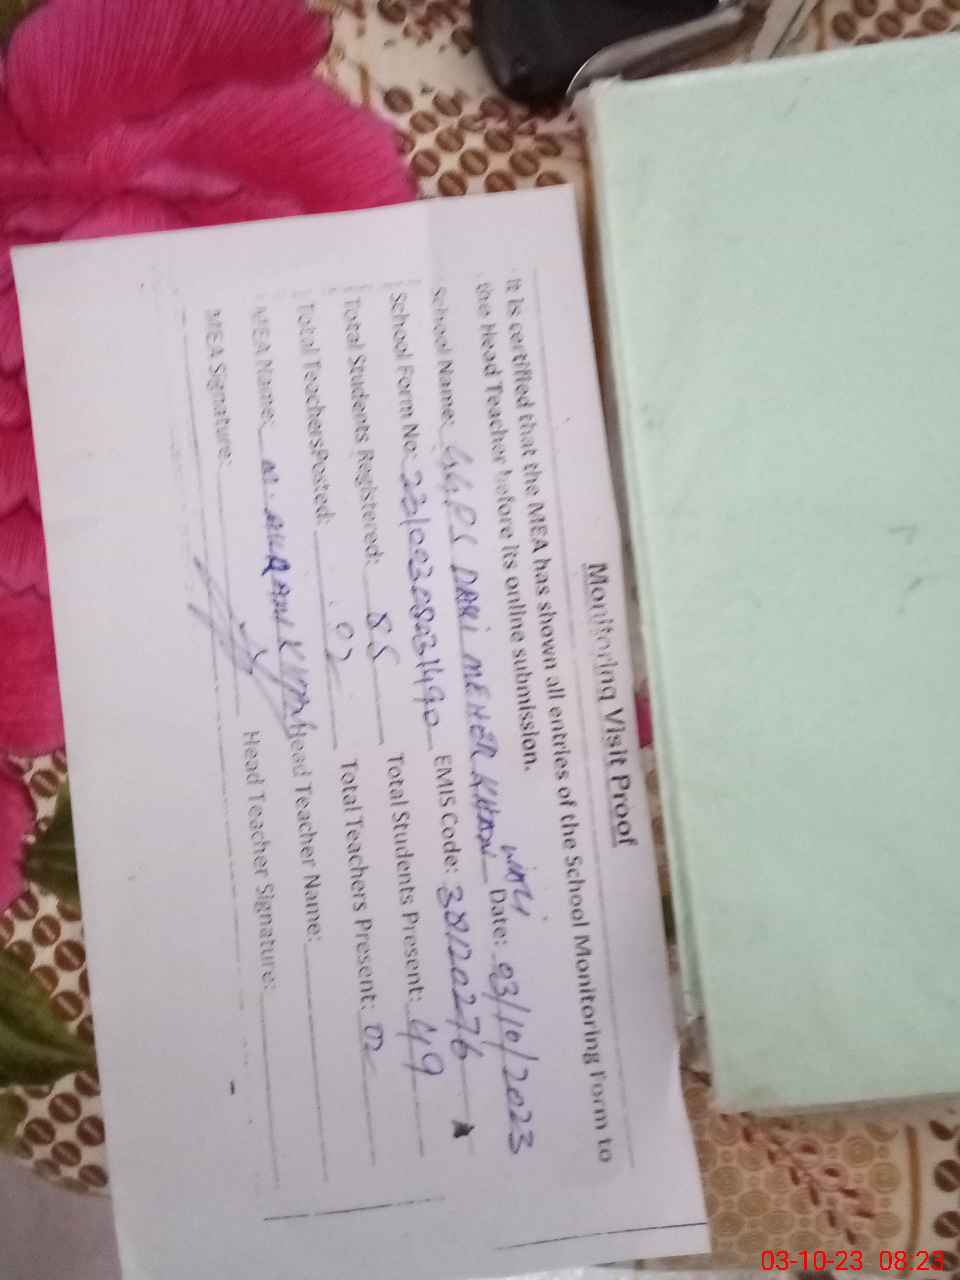 Monitoring Visit Proof
It is certified that the MEA has shown all entries of the School Monitoring Form to
the Head Teacher before its online submission.
School Name: GGPS DAKI MEHER KHAN WALI Date: 03/10/2023
School Form No: EMIS Code: 38120276
Total Students Registered: 85 Total Students Present: 49
Total Teachers Posted: 02 Total Teachers Present: 02
MEA Name: Head Teacher Name:
MEA Signature: Head Teacher Signature:
03-10-23 08:23